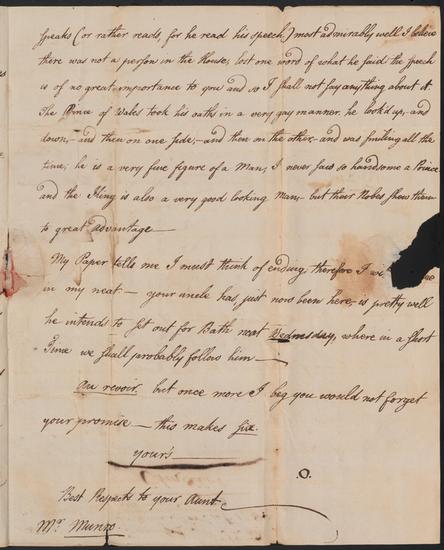 speaks (or rather reads, for he read his speech,) most admirably well I believe
there was not a person in the House, lost one word of what he said the speech
is of no great importance to you and so I shall not say anything about it.
The Prince of Wales took his oath in a very gay manner. he look'd up, and
down,- and then on one side,- and then on the other- and was smiling all the
time; he is a very fine figure of a Man, I never saw so handsome a Prince
and the King is also a very good looking Man,- but their Robes shew them
to great advantage—
My Paper tells me I must think of ending, therefore I
in my next— your uncle has just now been here, is pretty well
he intends to set out for Bath next Wednesday, where in a short
Time we shall probably follow him—
Au revoir. but once more I beg you would not forget
your promise— this makes six.
your's—
.O.
Best Respects to your Aunt
Mrs. Munro.